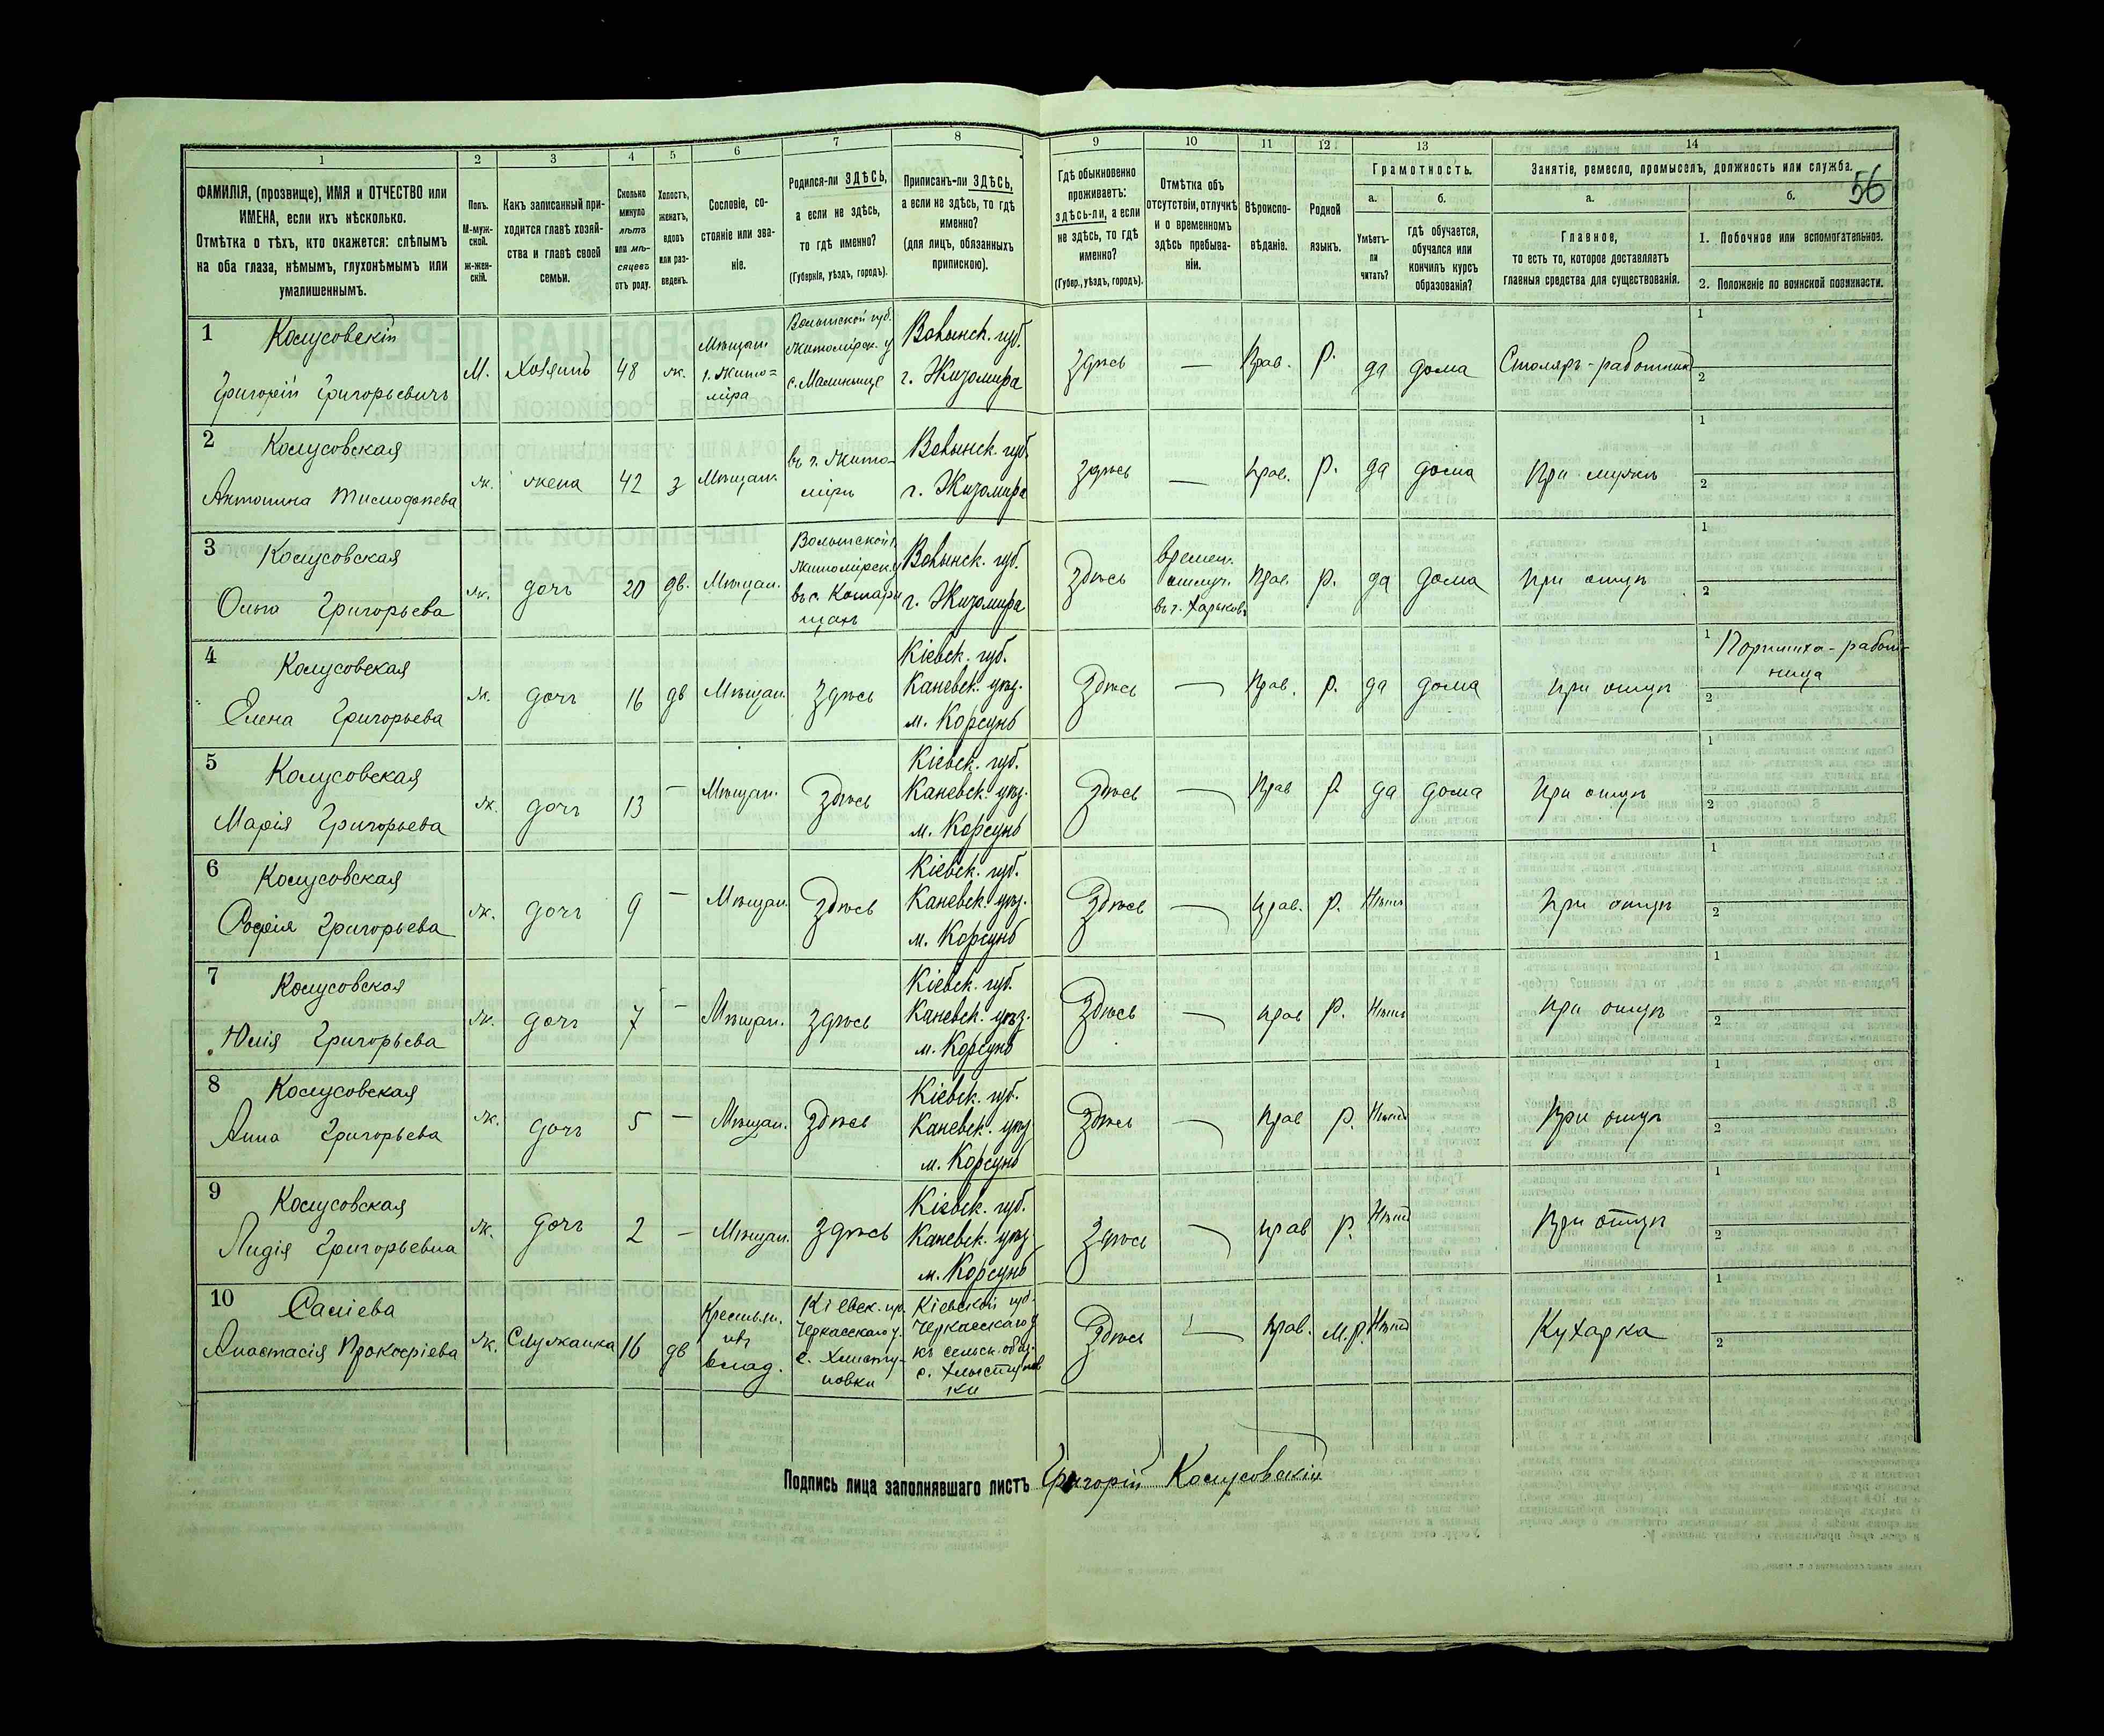 56
1 2 3 4 5 6 7 8 9 10 11 12 13 14
ФАМИЛІЯ, (прозвище), ИМЯ и ОТЧЕСТВО или
ИМЕНА, если ихъ нѣсколько.
Отмѣтка о тѣхъ, кто окажется: слѣпымъ
на оба глаза, нѣмымъ, глухонѣмымъ или
умалишеннымъ.
Полъ.
М-муж-
ской.
ж-жен-
скій.
Какъ записанный при-
ходится главѣ хозяй-
ства и главѣ своей
семьи.
Сколько
минуло
лѣтъ
или мѣ-
сяцевъ
отъ роду.
Холостъ,
женатъ,
вдовъ
или раз-
веденъ.
Сословіе, со-
стояніе или зва-
ніе.
Родился-ли ЗДѢСЬ,
а если не здѣсь,
то гдѣ именно?
(Губернія, уѣздъ, городъ).
Приписанъ-ли ЗДѢСЬ,
а если не здѣсь, то гдѣ
именно?
(для лицъ, обязанныхъ
припискою).
Гдѣ обыкновенно
проживаетъ:
здѣсь-ли, а если
не здѣсь, то гдѣ
именно?
(Губер., уѣздъ, городъ).
Отмѣтка объ
отсутствіи, отлучкѣ
и о временномъ
здѣсь пребыва-
ніи.
Вѣроиспо-
вѣданіе.
Родной
языкъ.
Грамотность.
а.
Умѣетъ-
ли
читать?
б.
гдѣ обучается,
обучался или
кончилъ курсъ
образованія?
Занятіе, ремесло, промыселъ, должность или служба.
а.
Главное,
то есть то, которое доставляетъ
главныя средства для существованія.
б.
1. Побочное или вспомогательное.
2. Положеніе по воинской повинности.
1 Колусовскій
Григорій Григорьевичъ
М. Хозяинъ 48 ж.
Мѣщан.
г. Жито=
міра
Волынской губ.
Житомірск. у
Волынск. губ.
г. Житомира
здѣсь — Прав. Р. да дома Столяръ-работникъ
1
2
2 Колусовская
Антонина
Ж. жена 42 з Мѣщан.
въ г. Жито-
мірѣ
Волынск. губ.
г. Житомира
здѣсь — Прав. Р. да дома При мужѣ
1
2
3 Колусовская
Ольга Григорьева
Ж. дочь 20 дв. Мѣщан.
Волынской г.
Житомірск. у
Волынск. губ.
г. Житомира
Здѣсь
времен.
отлуч.
въ г. Харьковъ
Прав. Р. да дома При отцѣ
1
2
4 Колусовская
Елена Григорьева
Ж. дочь 16 дв Мѣщан. Здѣсь
Кіевск. губ.
Каневск. уѣз.
м. Корсунь
Здѣсь — Прав. Р. да дома При отцѣ
1 Портниха-работ-
ница
2
5 Колусовская
Марія Григорьева
Ж. дочь 13 — Мѣщан. Здѣсь
Кіевск. губ.
Каневск. уѣз.
м. Корсунь
Здѣсь — Прав Р. да дома При отцѣ
1
2
6 Колусовская
Софія Григорьева
Ж. дочь 9 — Мѣщан. Здѣсь
Кіевск. губ.
Каневск. уѣз.
м. Корсунь
Здѣсь — Прав. Р. Нѣтъ При отцѣ
1
2
7 Колусовская
Юлія Григорьева
Ж. дочь 7 — Мѣщан. здѣсь
Кіевск. губ.
Каневск. уѣз.
м. Корсунь
Здѣсь — Прав Р. Нѣтъ При отцѣ
1
2
8 Колусовская
Анна Григорьева
Ж. дочь 5 — Мѣщан. Здѣсь
Кіевск. губ.
Каневск. уѣз
м. Корсунь
Здѣсь — Прав Р. Нѣтъ При отцѣ
1
2
9 Колусовская
Лидія Григорьевна
Ж. дочь 2 — Мѣщан. здѣсь
Кіевск. губ.
Каневск. уѣз
м. Корсунь
здѣсь — Прав Р. Нѣтъ При отцѣ
1
2
10 Саліева
Анастасія Прокофіева
Ж. Служанка 16 дв
Крестьян.
влад.
Кіевск. гу.
Черкасскаго у.
с. Хлысту-
новки
Кіевской губ.
Черкасскаго у
къ сельск. общ.
с. Хлыстунов
ки
Здѣсь — Прав. М.р. Нѣтъ Кухарка
1
2
Подпись лица заполнявшаго листъ Григорій Колусовскій